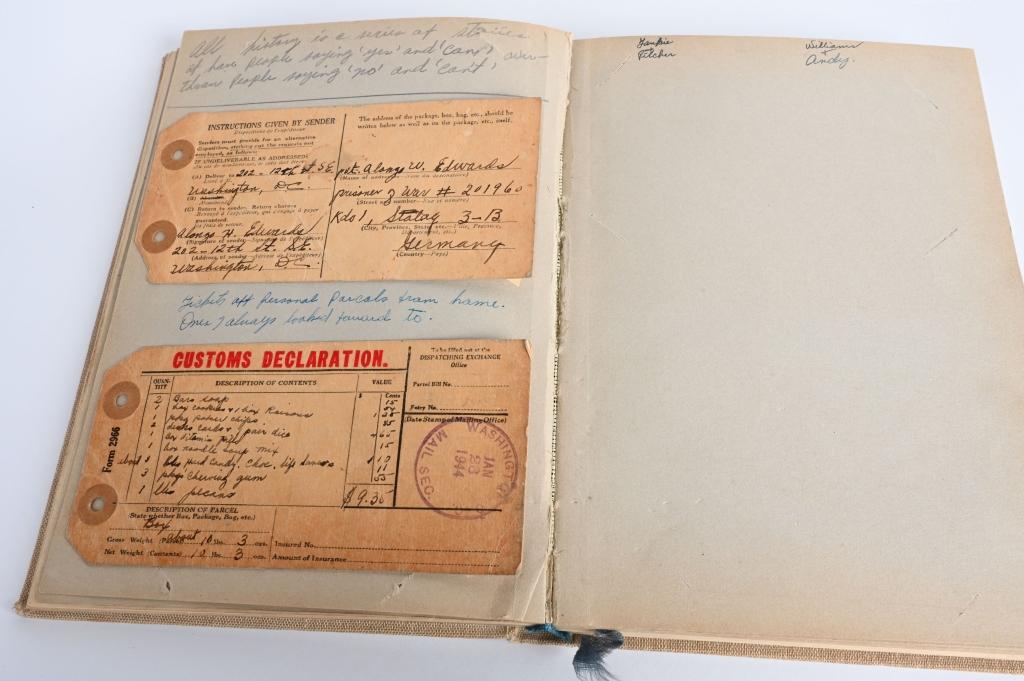 All history is a series of stories
of how people saying 'yes' and 'can' over-
threw people saying 'no' and 'can't',
INSTRUCTIONS GIVEN BY SENDER
Dispositions de l'expéditeur
Senders must provide for an alternative
disposition, striking out the requests not
employed, as follows:
IF UNDELIVERABLE AS ADDRESSED:
(A) Deliver to 202 - 12th St. S.E.
Washington, D.C.
(B) Abandon
(C) Return to sender. Return charges
guaranteed.
Alonzo H. Edwards
(Signature of sender—Signature de l'expéditeur)
202 - 12th St. S.E.
(Address of sender—Adresse de l'expéditeur)
Washington, D.C.
The address of the package, box, bag, etc., should be
written below as well as on the package, etc., itself.
Pvt. Alonzo W. Edwards
prisoner of War # 201960
(Street and number—Rue et numéro)
Kdo 1, Stalag 3-B
(City, Province, State, etc.—Ville, Province,
Département, etc.)
Germany
(Country—Pays)
Tickets off personal parcels from home.
Ones I always looked forward to.
CUSTOMS DECLARATION.
Form 2966
QUAN-
TITY
DESCRIPTION OF CONTENTS
VALUE
$ Cents
2 Bars soap
1 box cookies & 1 box Raisons
1 pkg potato chips
1 box Vitamin pills
1 box noodle soup mix 15
lbs Hard Candy, Choc, life savers
3 pkgs chewing gum
1 lbs pecans
$9.35
To be filled out at the
DISPATCHING EXCHANGE
Office
Parcel Bill No.
Entry No.
(Date Stamp of Mailing Office)
WASHINGTON
JAN
28
1944
MAIL SEC.
DESCRIPTION OF PARCEL
(State whether Box, Package, Bag, etc.)
Box
Gross Weight about 10 lbs. 3 ozs. Insured No.
Net Weight (Contents) 10 lbs. 3 ozs. Amount of Insurance
Frankie
Pitcher
Williams
+
Andy.